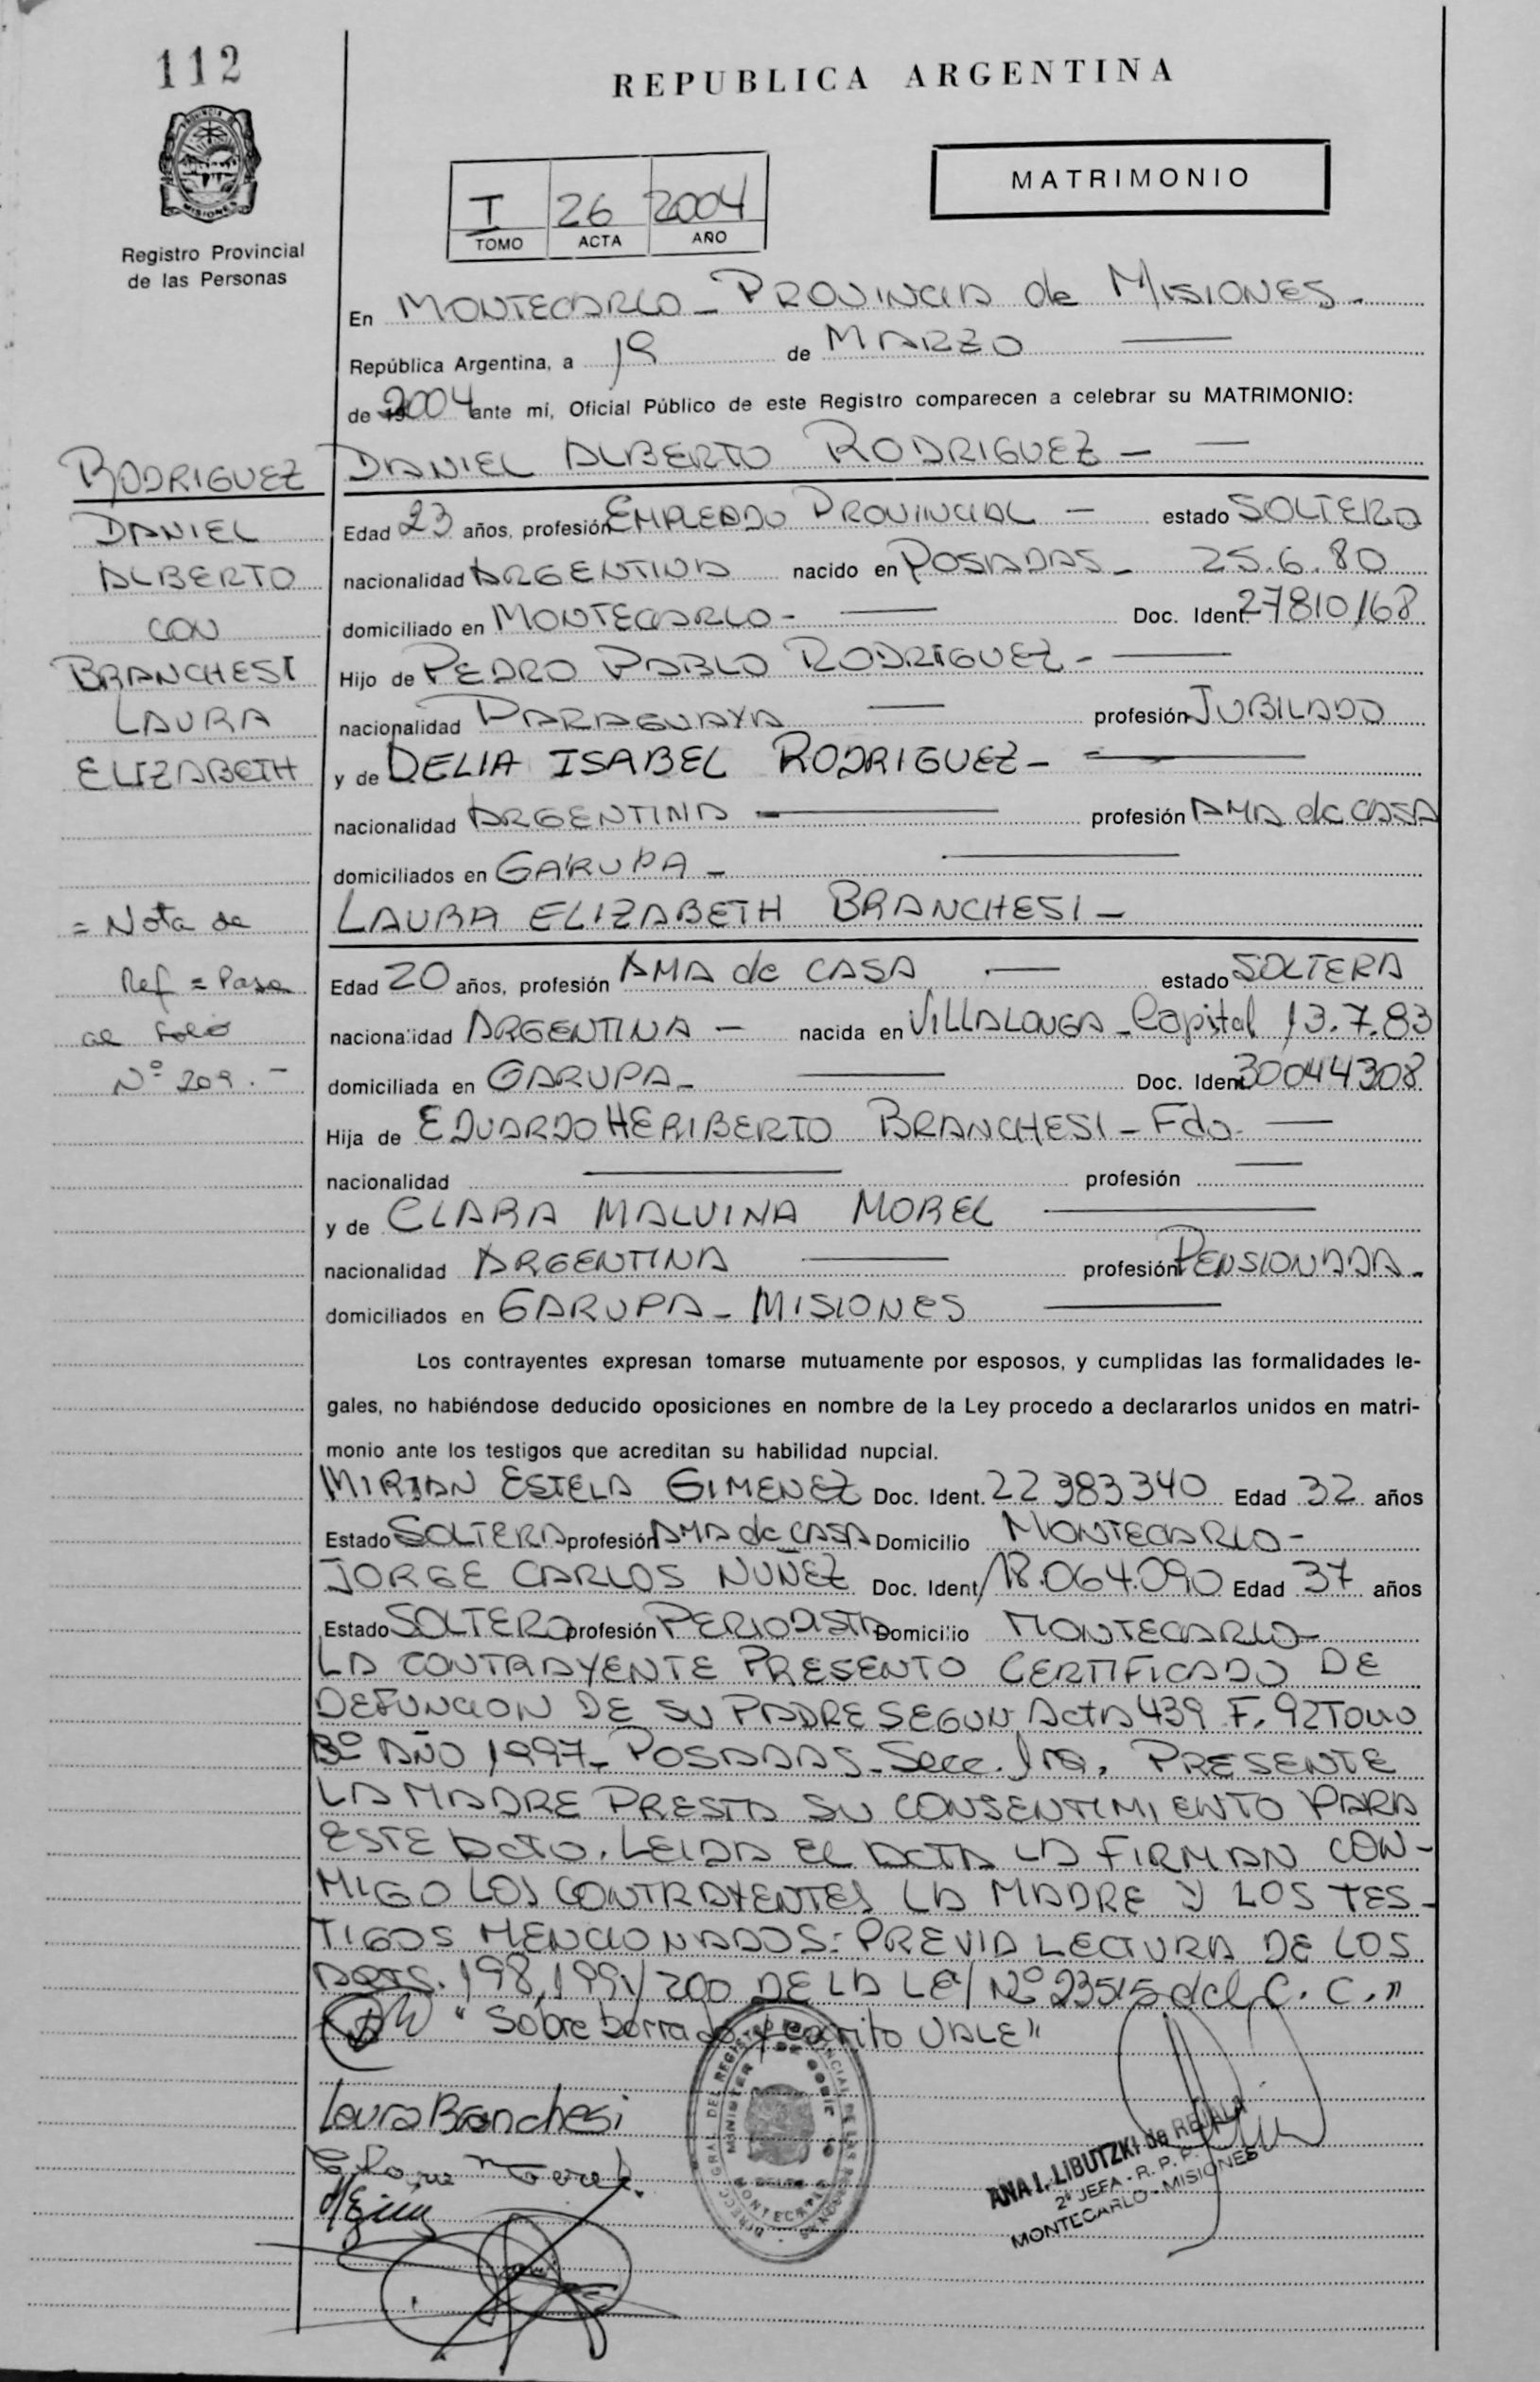 112
REPUBLICA ARGENTINA
MATRIMONIO
I 26 2004
TOMO ACTA AÑO
MISIONES
Registro Provincial
de las Personas
En MONTECARLO - PROVINCIA de MISIONES -
República Argentina, a 19 de MARZO
de 2004 ante mí, Oficial Público de este Registro comparecen a celebrar su MATRIMONIO:
RODRIGUEZ
DANIEL
ALBERTO
CON
BRANCHESI
LAURA
ELIZABETH
= Nota de
Ref = Pasa
al Folio
N° 209.-
DANIEL ALBERTO RODRIGUEZ -
Edad 23 años, profesión EMPLEADO PROVINCIAL - estado SOLTERO
nacionalidad ARGENTINA nacido en POSADAS - 25.6.80
domiciliado en MONTECARLO - Doc. Ident. 27810168
Hijo de PEDRO PABLO RODRIGUEZ -
nacionalidad PARAGUAYA profesión JUBILADO
y de DELIA ISABEL RODRIGUEZ -
nacionalidad ARGENTINA profesión AMA de CASA
domiciliados en GARUPA -
LAURA ELIZABETH BRANCHESI -
Edad 20 años, profesión AMA de CASA estado SOLTERA
nacionalidad ARGENTINA - nacida en VILLALONGA - Capital 13.7.83
domiciliada en GARUPA - Doc. Ident. 30044308
Hija de EDUARDO HERIBERTO BRANCHESI - Fdo.
nacionalidad profesión
y de CLARA MALVINA MOREL
nacionalidad ARGENTINA profesión PENSIONADA -
domiciliados en GARUPA - MISIONES
Los contrayentes expresan tomarse mutuamente por esposos, y cumplidas las formalidades le-
gales, no habiéndose deducido oposiciones en nombre de la Ley procedo a declararlos unidos en matri-
monio ante los testigos que acreditan su habilidad nupcial.
MIRIAN ESTELA GIMENEZ Doc. Ident. 22383340 Edad 32 años
Estado SOLTERA profesión AMA de CASA Domicilio MONTECARLO -
JORGE CARLOS NUÑEZ Doc. Ident. 18.064.090 Edad 37 años
Estado SOLTERO profesión PERIODISTA Domicilio MONTECARLO -
LA CONTRAYENTE PRESENTO CERTIFICADO DE
DEFUNCION DE SU PADRE SEGUN ACTA 439 F. 92 TOMO
3° AÑO 1997 - POSADAS - Secc. 1ra. PRESENTE
LA MADRE PRESTA SU CONSENTIMIENTO PARA
ESTE ACTO. LEIDA EL ACTA LA FIRMAN CON-
MIGO LOS CONTRAYENTES LA MADRE Y LOS TES-
TIGOS MENCIONADOS: PREVIA LECTURA DE LOS
ARTS. 198, 199 y 200 DE LA LEY N° 23515 del C. C."
"Sobre borrado y escrito VALE"
Laura Branchesi
ANA I. LIBUTZKI de REJALA
2ª JEFA - R. P. P.
MONTECARLO - MISIONES